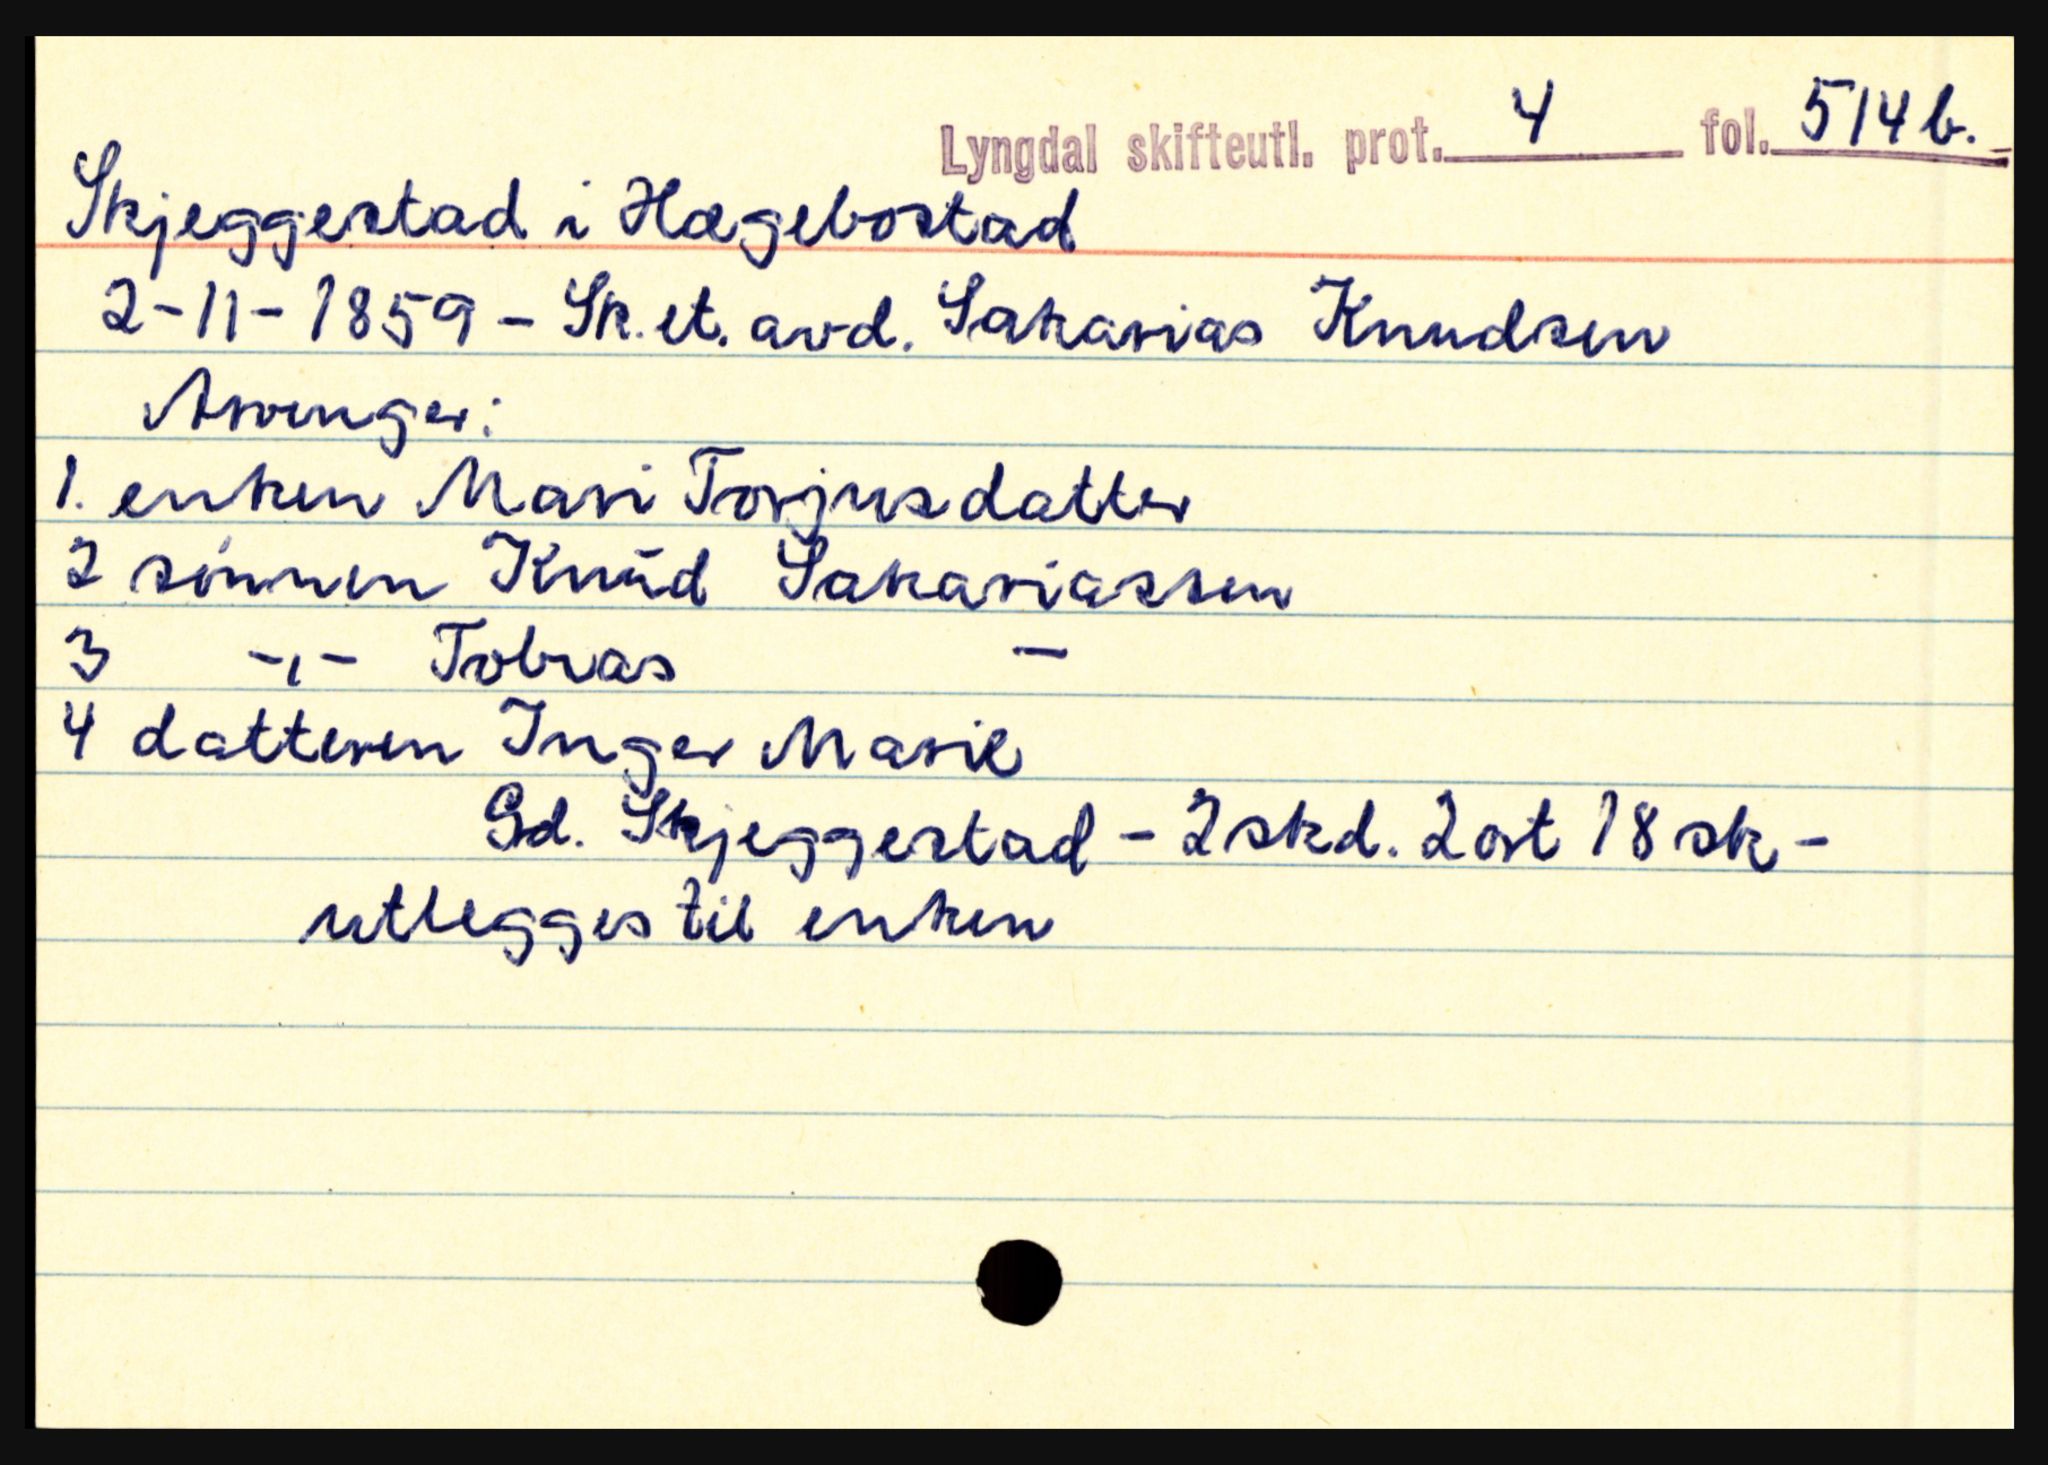 Lyngdal skifteutl. prot. 4 fol. 514 b.
Skjeggestad i Hægebostad
2-11-1859 - Sk. et. avd. Sakarias Knudsen
Arvinger:
1. enken Mari Torjusdatter
2 sønnen Knud Sakariassen
3 -,,- Tobias -
4 datteren Inger Marie
Gd. Skjeggestad - 2 skd. 2 ort 18 sk -
utlegges til enken